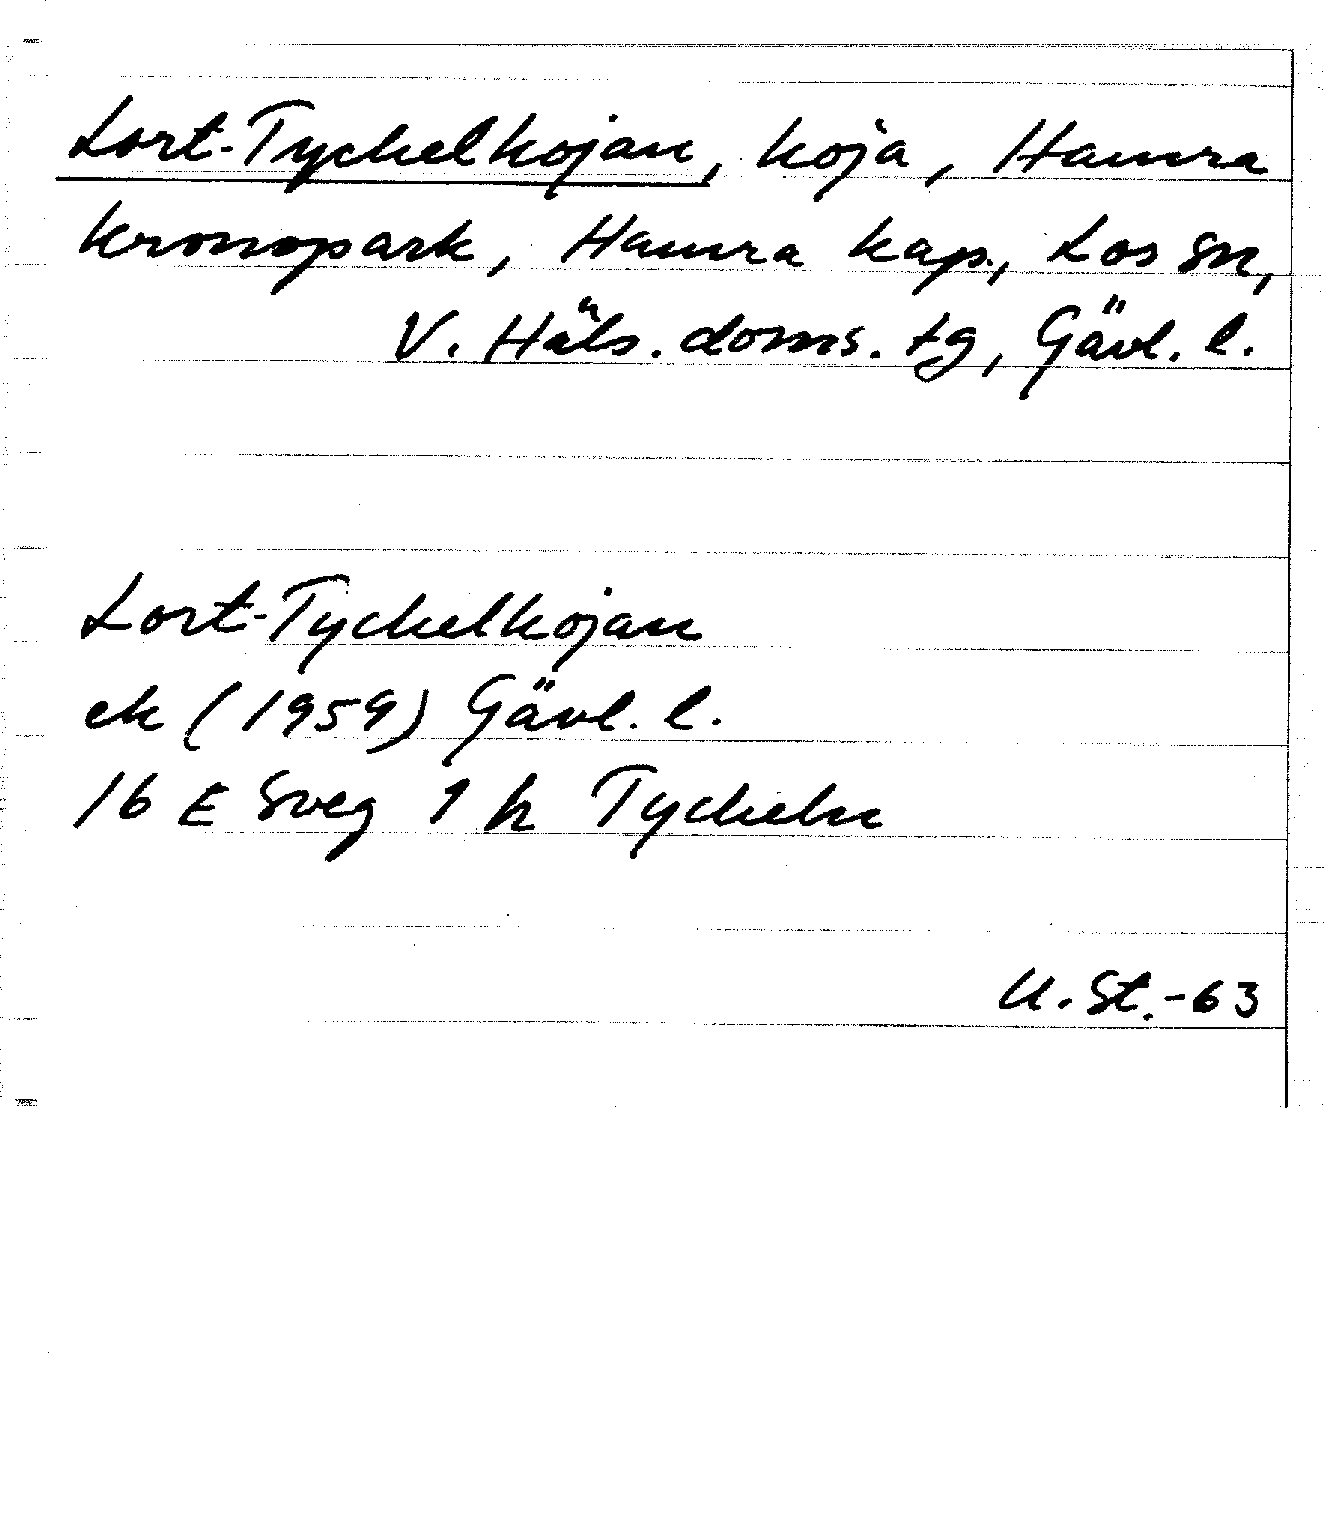 Lort-Tyckelkojan, koja, Hamra
kronopark, Hamra kap., Los sn,
V. Häls. doms. tg, Gävl. l.
Lort-Tyckelkojan
ek (1959) Gävl. l.
16 E Sveg 1 h Tyckeln
U. St.-63